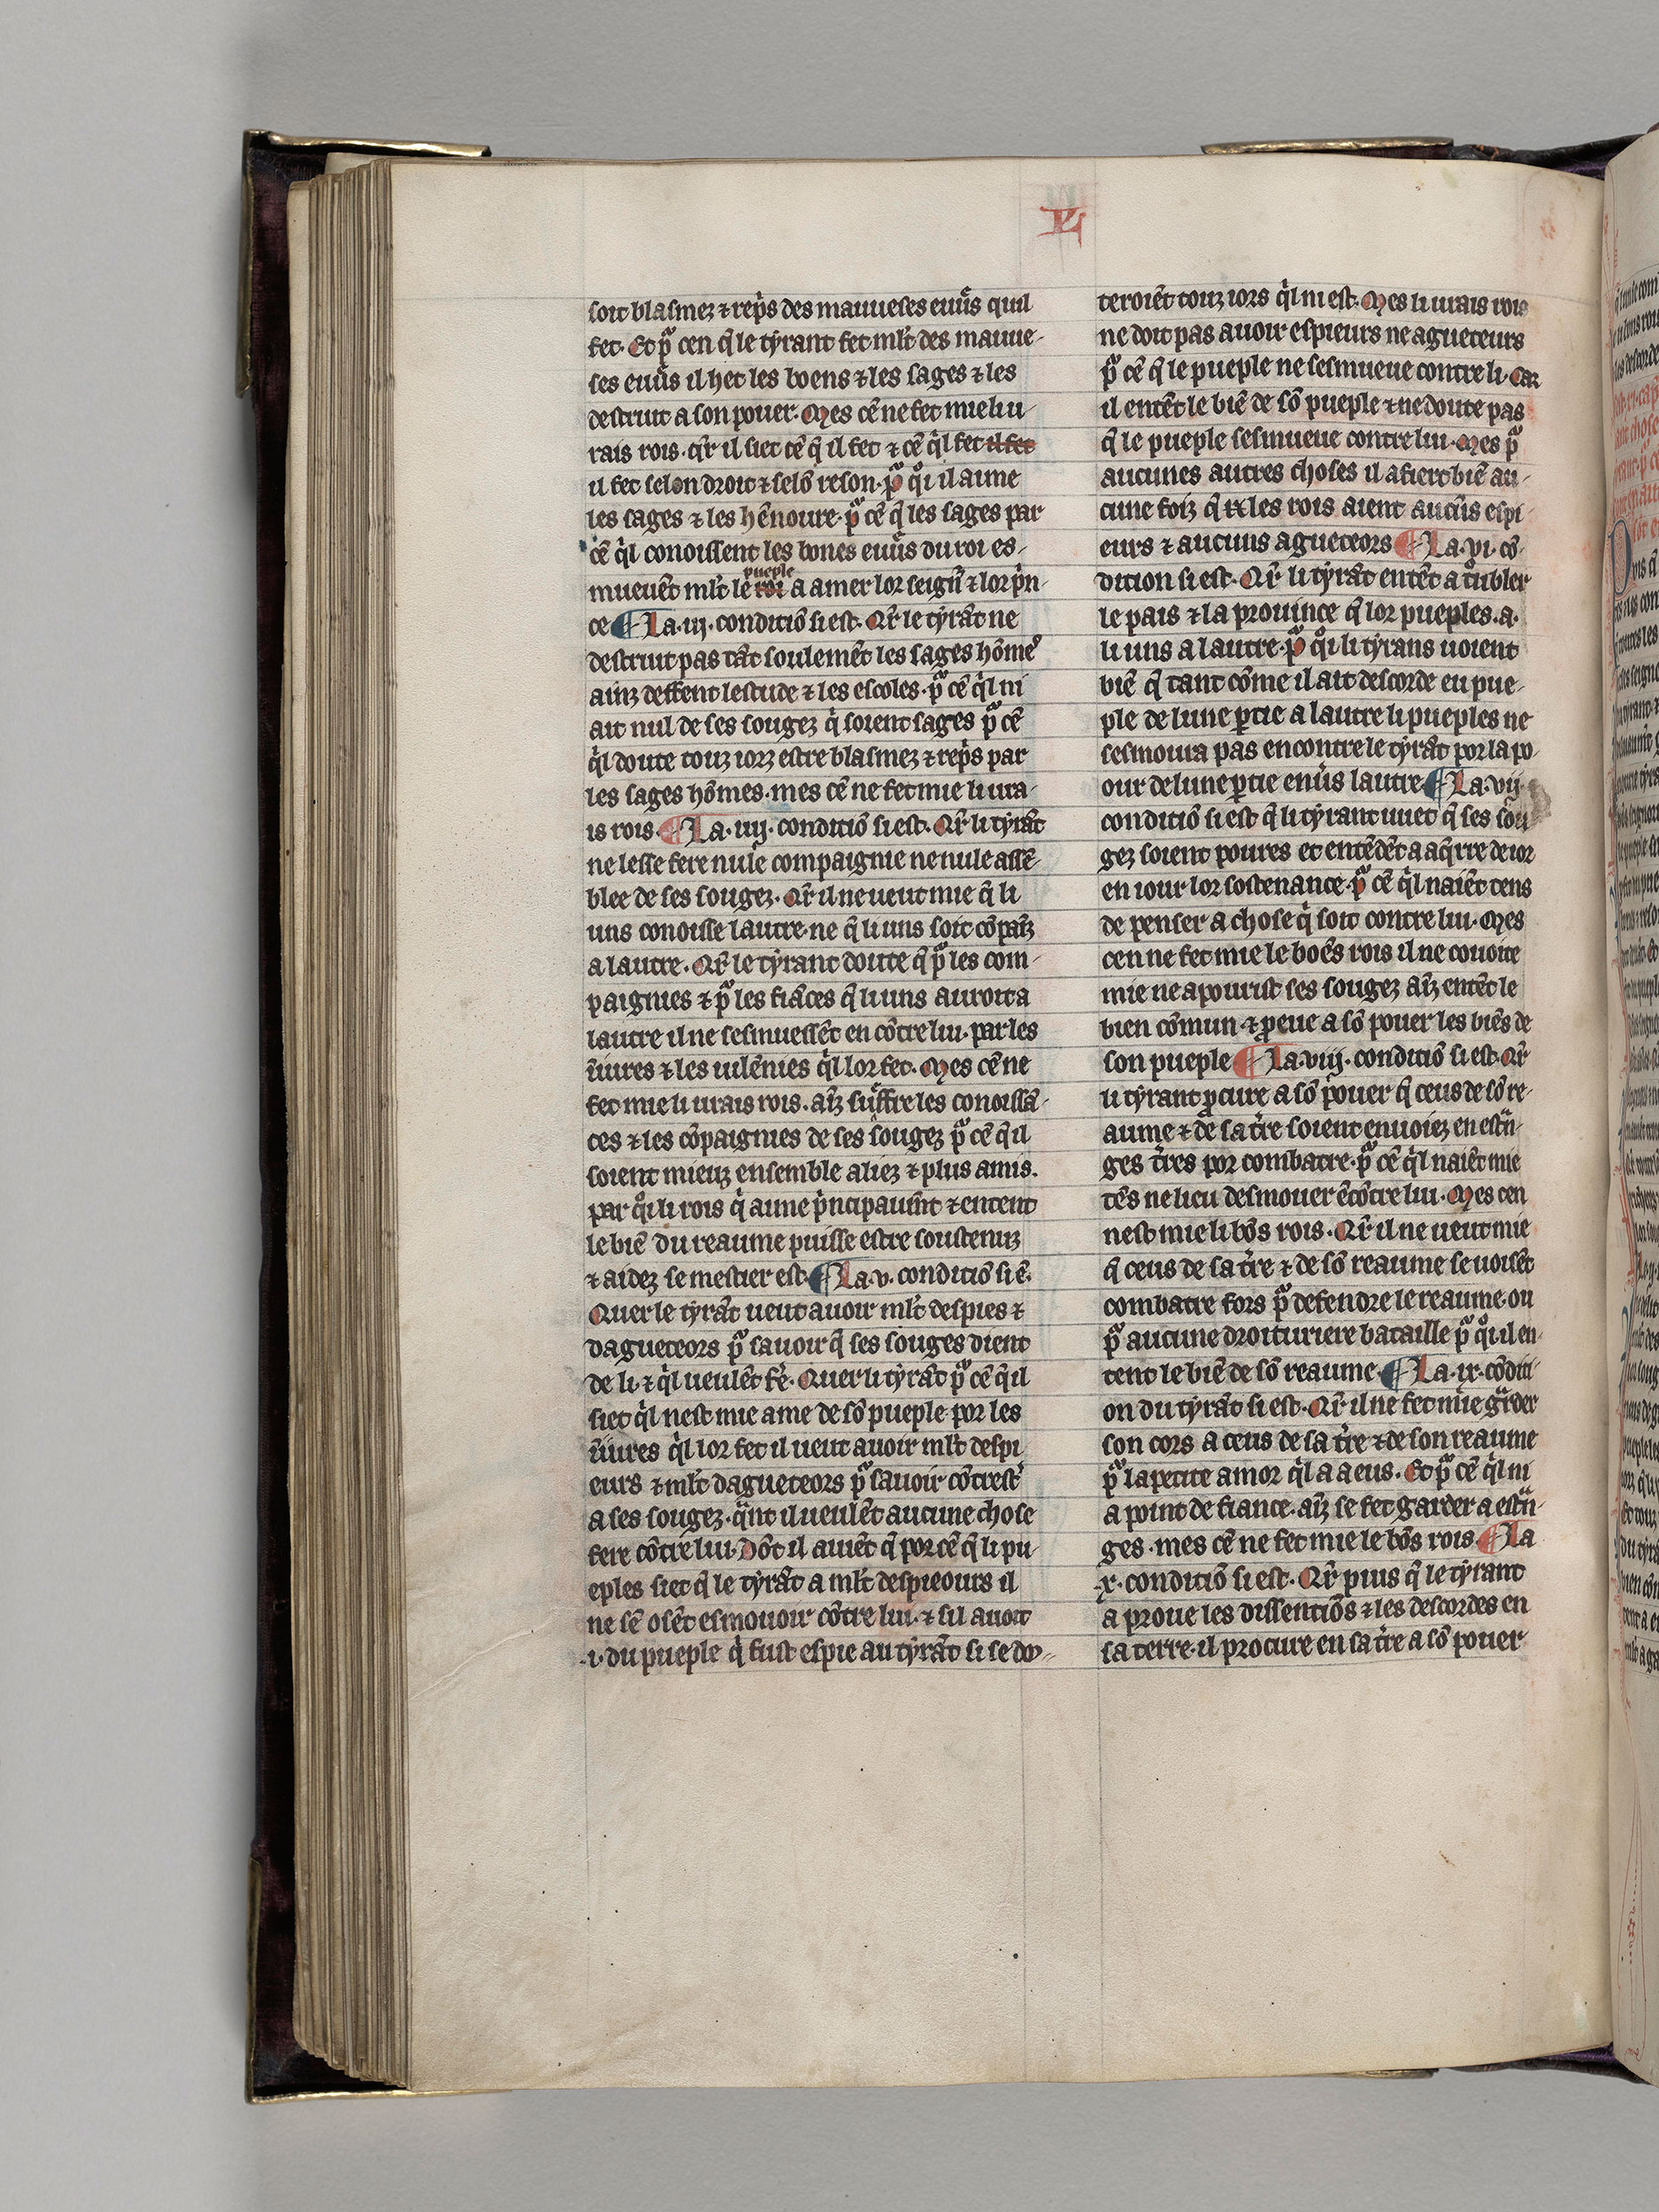 L
soit blasmez ⁊ rep̾s des mauueses euu᷒s quil
fet. Et pͣ cen q̄ le tyrant fet ml̄t des mauue-
ses euu᷒s il het les boens ⁊ les sages ⁊ les
destruit a son pouer. Mes cē ne fet mie li u-
rais rois. q̄r il siet cē q̄ il fet ⁊ cē qͥl fet il fet
il fet selon droit ⁊ selō reson. pͣ qͦi il aime
les sages ⁊ les hēnoure. pͣ cē q̄ les sages par
cē qͥl conoissent les bones euu᷒s du roi es-
mueuēt ml̄t le roi pueple a amer lor seign̄ ⁊ lor pͥn-
ce ¶ La .iij. conditiō si est. Qr̄ le tyrāt ne
destruit pas tāt soulemēt les sages hōme᷒
ainz deffent lestude ⁊ les escoles. pͣ cē qͥl ni
ait nul de ses sougez qͥ soient sages pͣ cē
qͥl doute touz iorz estre blasmez ⁊ rep̾s par
les sages hōmes. mes cē ne fet mie li ura-
is rois. ¶ La .iiij. conditiō si est. Qr̄ li tyrāt
ne lesse fere nule compaignie ne nule assē-
blee de ses sougez. Qr̄ il ne ueut mie q̄ li
uns conoisse lautre. ne q̄ li uns soit cōpaīz
a lautre. Qr̄ le tyrant doute q̄ pͣ les com-
paignies ⁊ pͣ les fiāces q̄ li uns auroit a
lautre il ne sesmuessēt en cōtre lui. par les
īiures ⁊ les uilēnies qͥl lor fet. Mes cē ne
fet mie li urais rois. aīz suffre les conoissā-
ces ⁊ les cōpaignies de ses sougez pͣ cē q̄ il
soient mieuz ensemble aliez ⁊ plus amis.
par qͦi li rois qͥ aime pͥncipaum̄t ⁊ entent
le biē du reaume puisse estre soustenuz
⁊ aidez se mestier est. ¶ La .v. conditiō si ē.
Quer le tyrāt ueut auoir ml̄t despies ⁊
dagueteors pͣ sauoir q̄ ses souges dient
de li. ⁊ qͥl ueulēt fe᷒. Quer li tyrāt pͣ cē q̄ il
siet qͥl nest mie ame de sō pueple por les
īiures qͥl lor fet il ueut auoir ml̄t despi
eurs ⁊ ml̄t dagueteors pͣ sauoir cōtrest᷒
a ses sougez. qͣnt il ueulēt aucune chose
fere cōtre lui. Dōt il auiēt q̄ por cē q̄ li pu-
eples siet q̄ le tyrāt a ml̄t despieours il
ne sē osēt esmouoir cōtre lui. ⁊ sil auoit
.i. du pueple qͥ fust espie au tyrāt si se do-
teroiēt touz iors qͥl ni est. Mes li urais rois
ne doit pas auoir espieurs ne agueteurs
pͣ cē q̄ le pueple ne sesmueue contre li. Car
il entēt le biē de sō pueple ⁊ ne doute pas
q̄ le pueple sesmueue contre lui. Mes pͣ
aucunes autres choses il afiert biē au-
cune foiz q̄ les rois aient aucūs espi-
eurs ⁊ aucuns agueteors ¶ La .vi. cō-
dition si est. Qr̄ li tyrāt entēt a tͦubler
le pais ⁊ la prouince q̄ lor pueples. a.
li uns a lautre. pͣ qͦi li tyrans uoient
biē q̄ tant cōme il ait descorde eu pue-
ple de lune ꝑtie a lautre li pueples ne
sesmoura pas encontre le tyrāt por la po-
our de lune ꝑtie enu᷒s lautre ¶ La .vij.
conditiō si est q̄ li tyrant uuet q̄ ses sou
gez soient poures et entēdēt a aq̄rre de ior
en iour lor sostenance. pͣ cē qͥl naiēt tens
de penser a chose qͥ soit contre lui. Mes
cen ne fet mie le boēs rois il ne couoite
mie ne apourist ses sougez aīz entēt le
bien cōmun. ⁊ ꝓcure a sō pouer les biēs de
son pueple ¶ La .viij. conditiō si est. Qr̄
li tyrant ꝓcure a sō pouer q̄ ceus de sō re-
aume ⁊ de sa t᷒re soient enuoiez en estͣn-
ges t᷒res por combatre. pͣ cē qͥl naiēt mie
tēs ne lieu desmouer ēcōtre lui. Mes cen
nest mie li bōs rois. Qr̄ il ne ueut mie
q̄ ceus de sa t᷒re ⁊ de sō reaume se uoisēt
combatre fors pͣ defendre le reaume. ou
pͣ aucune droituriere bataille pͣ qͦi il en-
tent le biē de sō reaume. ¶ La .ix. cōditi-
on du tyrāt si est. Qr̄ il ne fet mie gͣrder
son cors a ceus de sa t᷒re ⁊ de son reaume
pͣ la petite amor qͥl a a eus. Et pͣ cē qͥl ni
a point de fiance. aīz se fet garder a estͣn-
ges. mes cē ne fet mie le bōs rois ¶ La
.x. conditiō si est. Qr̄ pius q̄ le tyrant
a proue les dissentiōs ⁊ les descordes en
sa terre. il procure en sa t᷒re a sō pouer